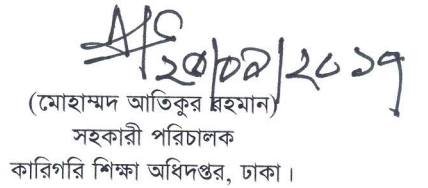 ২৫/০৯/২০১৭
(মোহাম্মদ আতিকুর রহমান)
সহকারী পরিচালক
কারিগরি শিক্ষা অধিদপ্তর, ঢাকা।